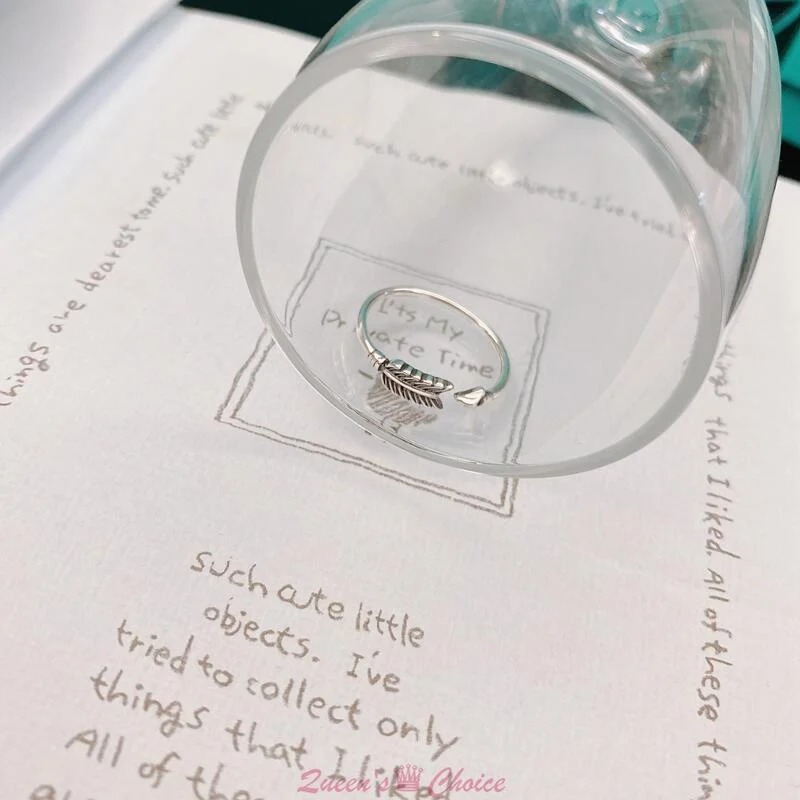 things are dearest to me. such cute little
such cute little objects. I've
L'ts My
Private Time
things that I liked. All of these thin
such cute little
objects. I've
tried to collect only
things that I liked
All of the
Queen's Choice